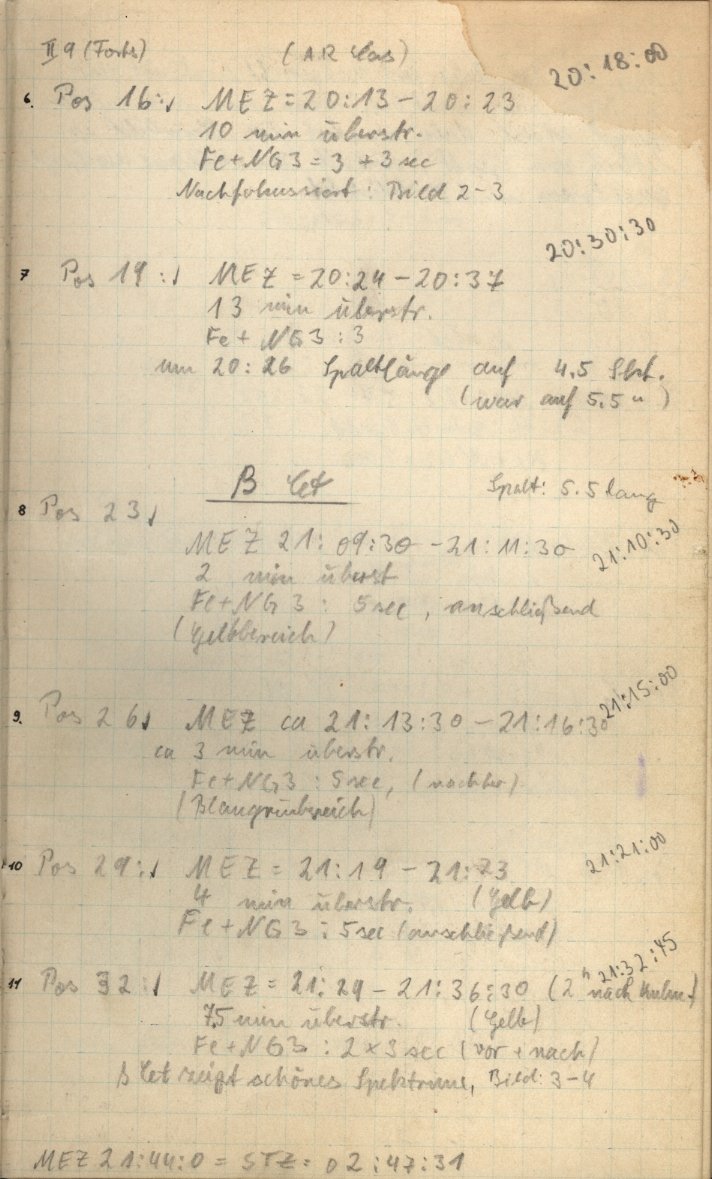 II 9 (Forts) (AR Cas) 20:18:00
6. Pos 16: MEZ = 20:13 - 20:23
10 min überstr.
Fe+NG3 = 3 + 3 sec
Nachfokussiert: Bild 2-3
20:30:30
7 Pos 19: MEZ = 20:24 - 20:37
13 min überstr.
Fe + NG3 : 3
um 20:26 Spaltlänge auf 4.5 Skt.
(war auf 5.5 " )
β Cet Spalt: 5.5 lang
8 Pos 23
MEZ 21:09:30 - 21:11:30 21:10:30
2 min überst
Fe+NG3 : 5 sec, anschließend
(Gelbbereich)
21:15:00
9. Pos 26 MEZ ca 21:13:30 - 21:16:30
ca 3 min überstr.
Fe+NG3 : 5 sec, (nachher)
(Blaugrünbereich)
21:21:00
10 Pos 29: MEZ = 21:19 - 21:23
4 min überstr. (Gelb)
Fe+NG3 : 5 sec (anschließend)
21:32:45
11 Pos 32: MEZ = 21:29 - 21:36:30 (2h nach Kulm.)
7.5 min überstr. (Gelb)
Fe+NG3 : 2×3 sec (vor + nach)
β Cet zeigt schönes Spektrum, Bild: 3-4
MEZ 21:44:0 = STZ = 02:47:31